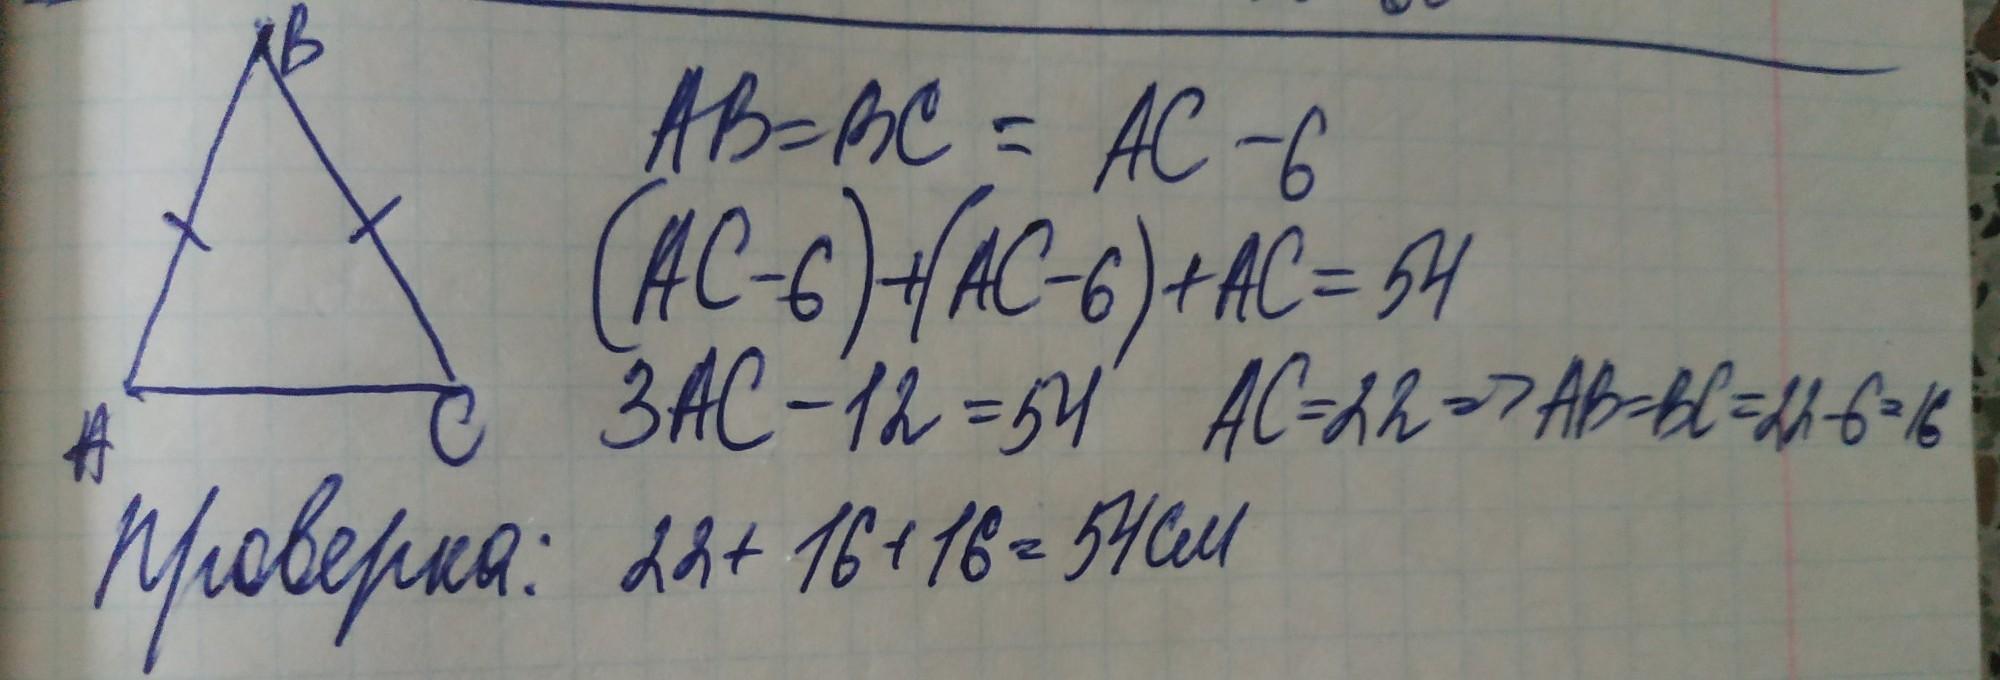 B
AB=BC = AC-6
(AC-6)+(AC-6)+AC=54
3AC-12=54 AC=22=>AB=BC=22-6=16
A C
Проверка: 22+ 16+16=54см